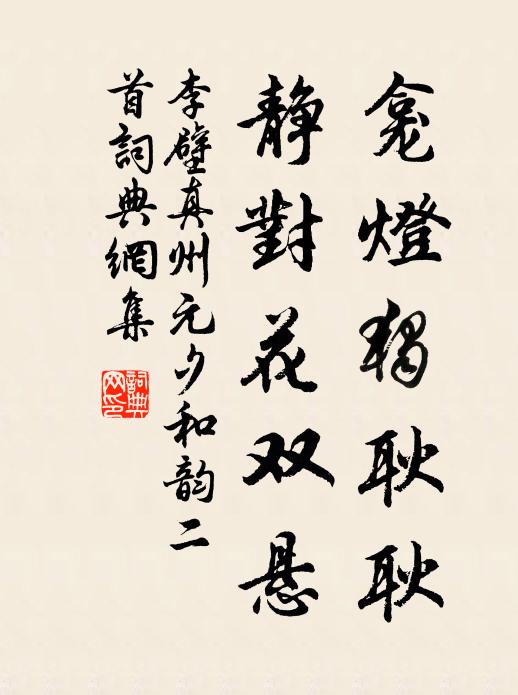 龛燈独耿耿
静對花双悬
李壁真州元夕和韵二
首詞典網集
詞典
网印